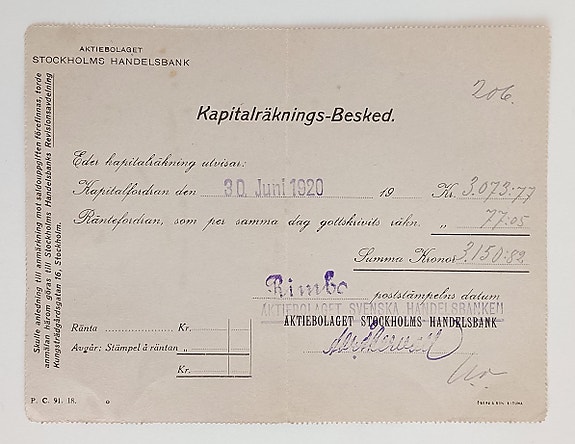 AKTIEBOLAGET
STOCKHOLMS HANDELSBANK
206.
Kapitalräknings-Besked.
Eder kapitalräkning utvisar:
Kapitalfordran den 30 Juni 1920 19 Kr. 3.073:77
Räntefordran, som per samma dag gottskrivits räkn. „ 77:05
Summa Kronor 3.150:82
Rimbo poststämpelns datum
AKTIEBOLAGET SVENSKA HANDELSBANKEN
AKTIEBOLAGET STOCKHOLMS HANDELSBANK
Ränta Kr.
Avgår: Stämpel å räntan „
Kr.
P. C. 91. 18.
Skulle anledning till anmärkning mot saldouppgiften förefinnas, torde
anmälan härom göras till Stockholms Handelsbanks Revisionsavdelning
Kungsträdgårdsgatan 16, Stockholm.